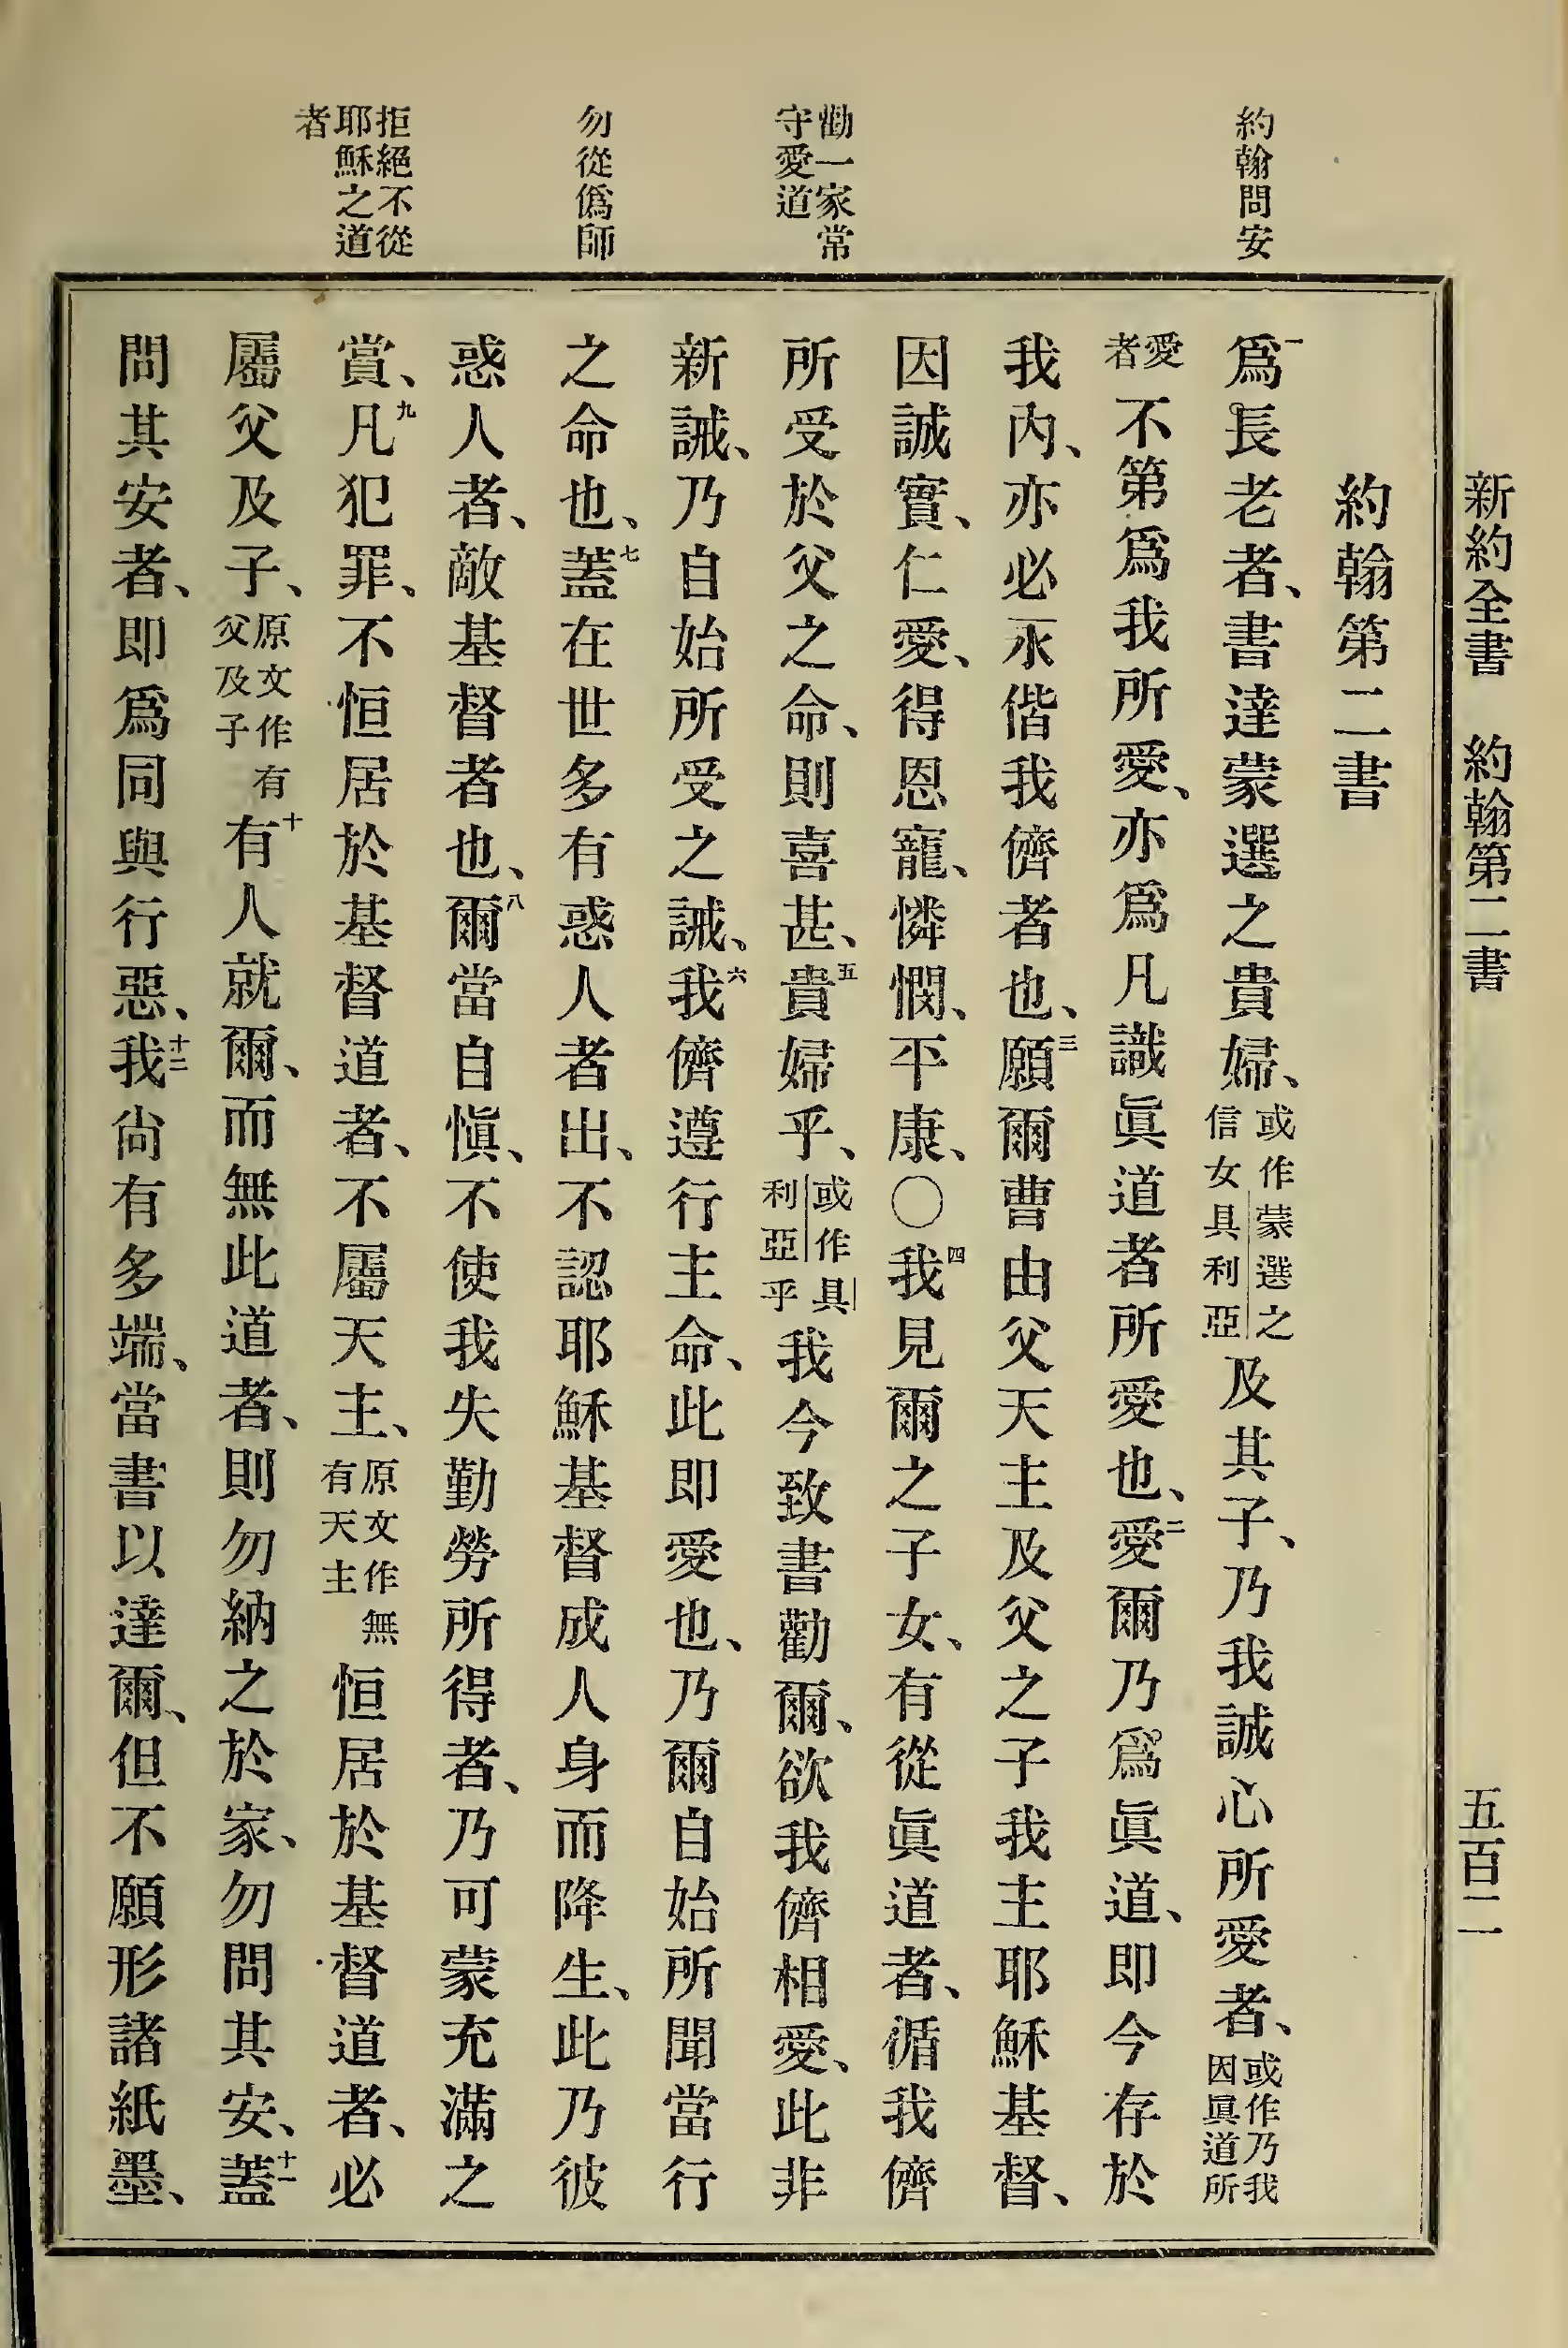 新約全書 約翰第二書 五百二
約翰問安
勸一家常
守愛道
勿從僞師
拒絕不從
耶穌之道
者
約翰第二書
一爲長老者、書達蒙選之貴婦、或作蒙選之信女具利亞及其子、乃我誠心所愛者、或作乃我因眞道所
愛者不第爲我所愛、亦爲凡識眞道者所愛也、二愛爾乃爲眞道、即今存於
我內、亦必永偕我儕者也、三願爾曹由父天主及父之子我主耶穌基督、
因誠實、仁愛、得恩寵、憐憫、平康、〇四我見爾之子女、有從眞道者、循我儕
所受於父之命、則喜甚、五貴婦乎、或作具利亞乎我今致書勸爾、欲我儕相愛、此非
新誡、乃自始所受之誡、六我儕遵行主命、此即愛也、乃爾自始所聞當行
之命也、七蓋在世多有惑人者出、不認耶穌基督成人身而降生、此乃彼
惑人者、敵基督者也、八爾當自愼、不使我失勤勞所得者、乃可蒙充滿之
賞、九凡犯罪、不恒居於基督道者、不屬天主、原文作無有天主恒居於基督道者、必
屬父及子、原文作有父及子十有人就爾、而無此道者、則勿納之於家、勿問其安、十一蓋
問其安者、即爲同與行惡、十二我尙有多端、當書以達爾、但不願形諸紙墨、